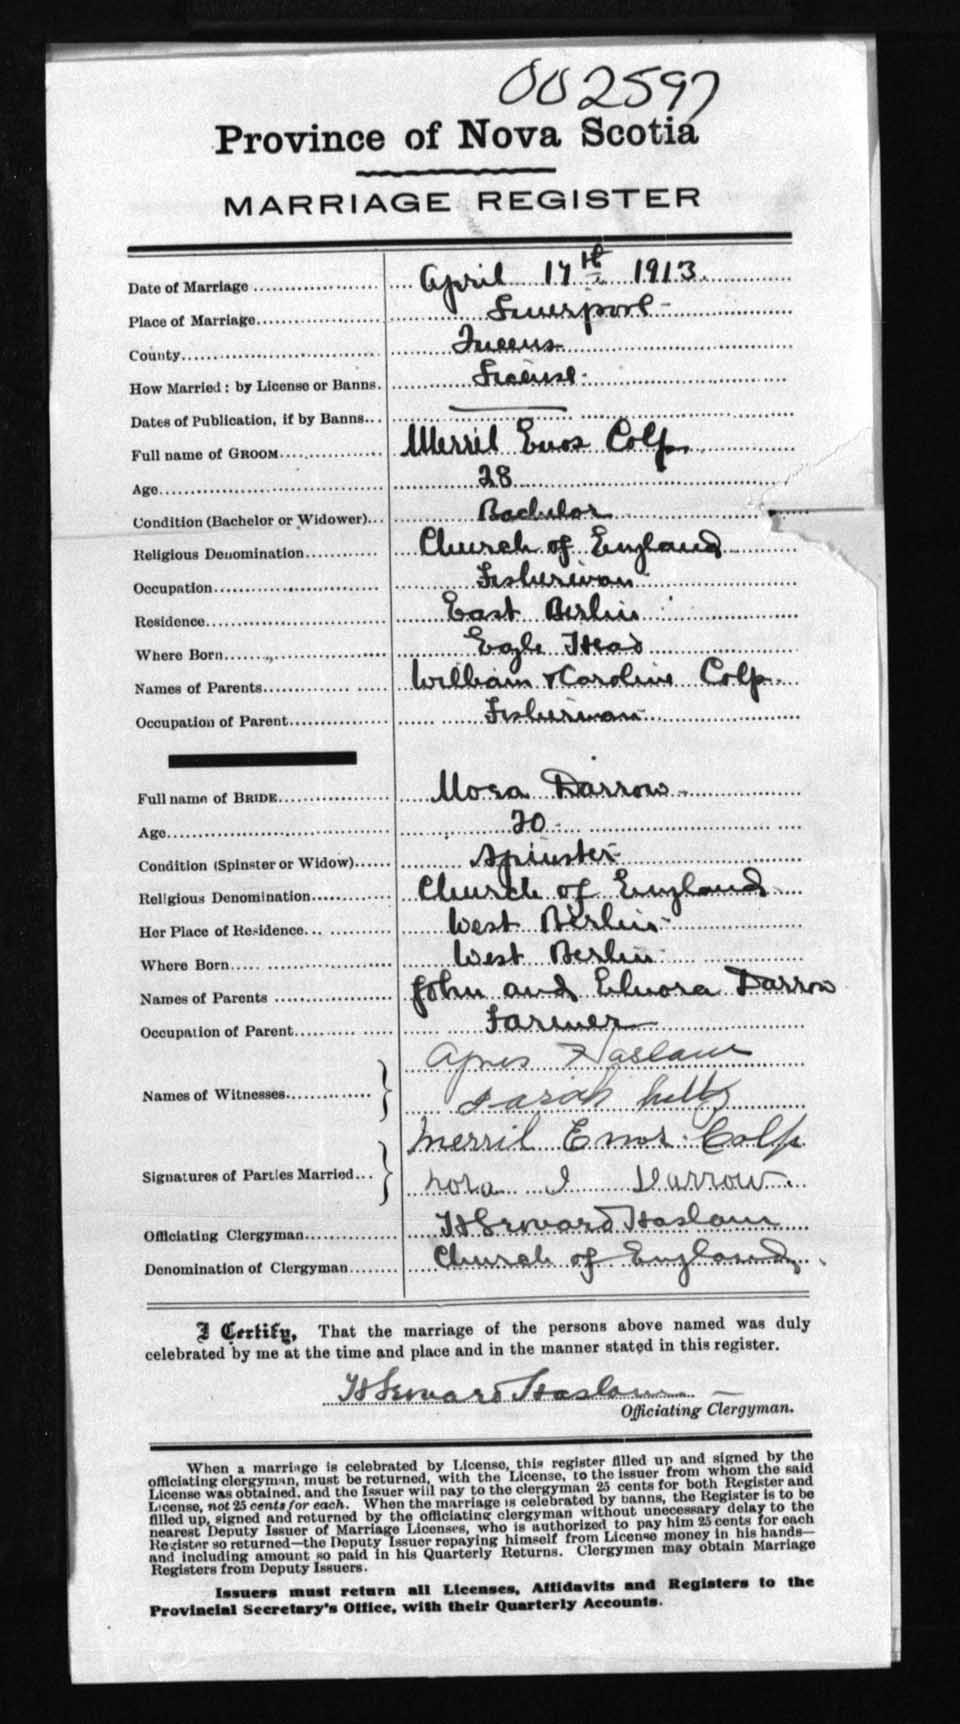 002597
Province of Nova Scotia
MARRIAGE REGISTER
Date of Marriage April 17th 1913.
Place of Marriage Liverpool
County Queens
How Married: by License or Banns. License
Dates of Publication, if by Banns
Full name of GROOM Merril Enos Colp
Age 28
Condition (Bachelor or Widower) Bachelor
Religious Denomination Church of England
Occupation Fisherman
Residence East Berlin
Where Born Eagle Head
Names of Parents William & Caroline Colp
Occupation of Parent Fisherman
Full name of BRIDE Darrow
Age 20
Condition (Spinster or Widow) Spinster
Religious Denomination Church of England
Her Place of Residence West Berlin
Where Born West Berlin
Names of Parents John and Elnora Darrow
Occupation of Parent Farmer
Names of Witnesses Agnes Haslam
Sarah
Signatures of Parties Married Merril Enos Colp
Nora I Darrow
Officiating Clergyman Haslam
Denomination of Clergyman Church of England
I Certify, That the marriage of the persons above named was duly
celebrated by me at the time and place and in the manner stated in this register.
Haslam
Officiating Clergyman.
When a marriage is celebrated by License, this register filled up and signed by the
officiating clergyman, must be returned, with the License, to the issuer from whom the said
License was obtained, and the Issuer will pay to the clergyman 25 cents for both Register and
License, not 25 cents for each. When the marriage is celebrated by banns, the Register is to be
filled up, signed and returned by the officiating clergyman without unecessary delay to the
nearest Deputy Issuer of Marriage Licenses, who is authorized to pay him 25 cents for each
Register so returned—the Deputy Issuer repaying himself from License money in his hands—
and including amount so paid in his Quarterly Returns. Clergymen may obtain Marriage
Registers from Deputy Issuers.
Issuers must return all Licenses, Affidavits and Registers to the
Provincial Secretary's Office, with their Quarterly Accounts.